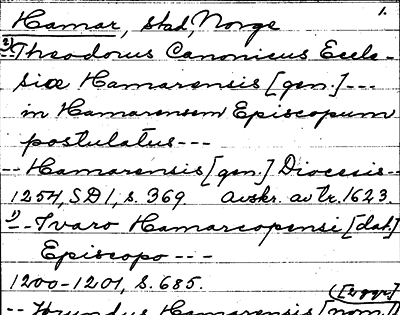 Hamar, stad, Norge 1.
2) Theodorus Canonicus Eccle-
siæ Hamarensis [gen.] ---
in Hamarensem Episcopum
postulatus ---
-- Hamarensis [gen.] Diocesis --
1254, SD1, s. 369. Avskr. av tr. 1623.
1) -- Ivaro Hamarcopensi [dat.]
Episcopo ---
1200-1201, S. 685.
([2 ggr]
-- Hamarensis [nom.]